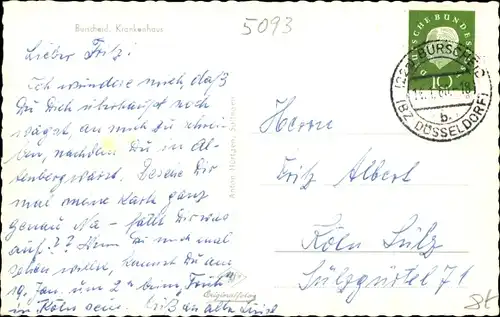 Burscheid. Krankenhaus
5093
Lieber Fritz!
Ich wundere mich, daß
Du Dich überhaupt noch
wagst, an mich zu schrei-
ben, nachdem Du in Al-
tenberg warst. Besehe Dir
mal meine Karte ganz
genau Na - fällt Dir was
auf?? Wenn Du mich mal
sehen willst, kannst Du am
19. Jan. um 2 beim Früh
in Köln sein. Gruß
Anton
Originalfoto
DEUTSCHE BUNDESPOST
10
BURSCHEID
(BZ. DÜSSELDORF)
b
Herrn
Fritz Albert
Köln Sülz
Sülzgürtel 71